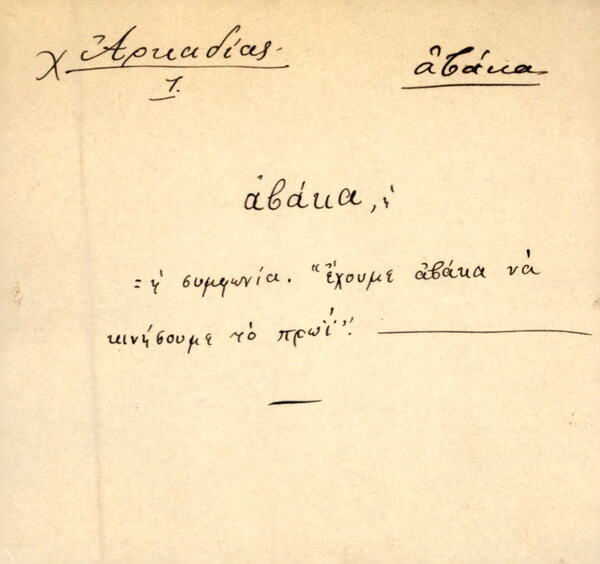 χ Ἀρκαδίας. ἀβάκα
1.
ἀβάκα, ἡ
= ἡ συμφωνία. "ἔχουμε ἀβάκα νὰ
κινήσουμε τὸ πρωΐ".